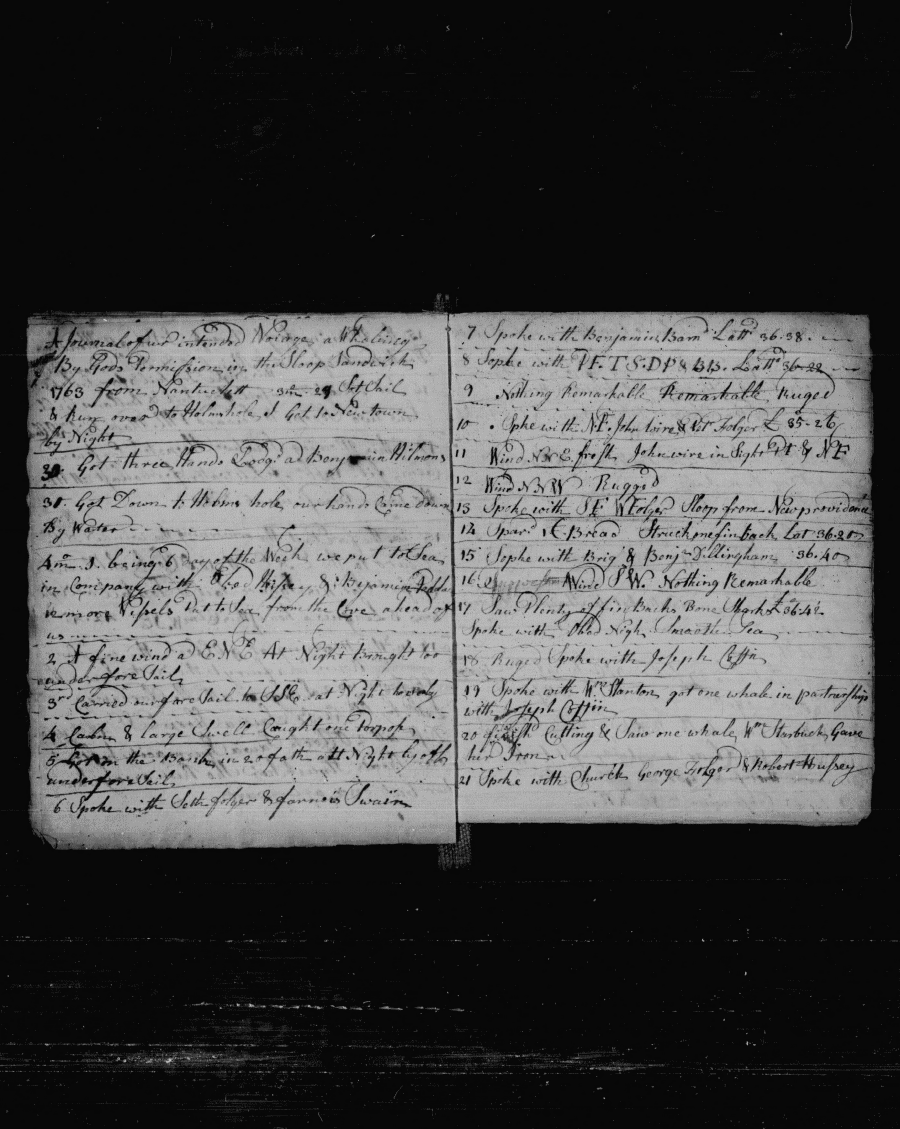 A Journal of an intended Voiage a Whaleing
By Gods Permission in the Sloop Sandwich
1763 from Nantuckett 3m 29 Set Sail
& Run over to Holmshole I Got to Newtown
by Night
30 Got three Hands Lodgd ad Benjamin Hilmans
31 Got Down to Holms hole our hands Came down
By Water
4m 1 being 6 Day of the Week we put to Sea
in Company with Obed Hussey & Benjamin
more Vessels Put to Sea from the Cove ahead of
us
2 A fine wind a ENE At Night Brought too
under fore Sail
3rd Carried our fore Sail to SSE at Night
4 Calm & large Swell Caught one Porpos
5 Got on the Bank in 20 fath att Night
under fore Sail
6 Spoke with Seth folger & Swain
7 Spoke with Benjamin Barnd Lattd 36-38
8 Sopke with PF. TS. DP & BB. Lattd 36-28
9 Nothing Remarkable Remarkable Ruged
10 Spke with NF. John wire & Pt Folger L 35-26
11 Wind NNE fresh John wire in Sight Pt & NF
12 Wind NNW Rugged
13 Spoke with SF. W Folger Sloop from New providence
14 Spard 1C Bread Struck one fin Back Lat 36-20
15 Sopke with Brig & Benj Dillingham 36-40
16 Wind SW. Nothing Remarkable
17 Saw Plenty of fin Backs Bone Shark Lt 36-42
Spoke with Obed Nigh Smooth Sea
18 Ruged Spoke with Joseph Coffin
19 Spoke with Wm Stanton got one whale in partnorship
with Joseph Coffin
20 Cutting & Saw one whale Wm Starbuck Gave
her Iron
21 Spoke with Church George Folger & Robert Hussey